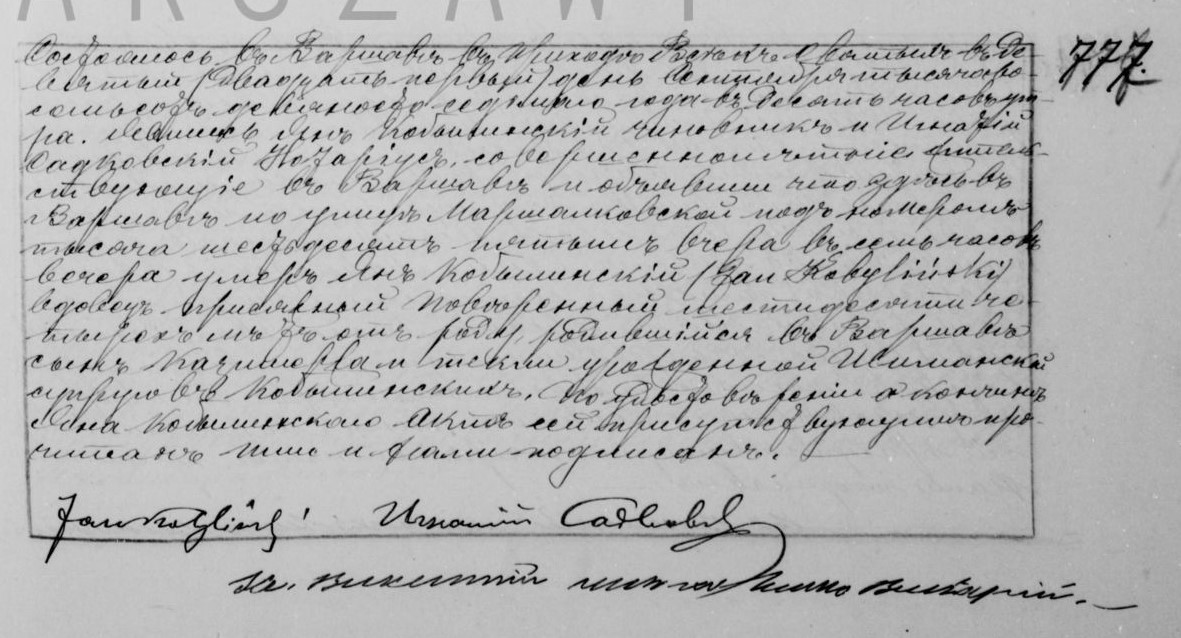 ARSZAWY
777.
Состоялось въ Варшавѣ въ приходѣ Всѣхъ Святыхъ въ Де-
вятый (двадцать первый) день Сентября тысяча во-
семьсотъ девяносто седьмаго года въ десять часовъ ут-
ра. Явились Янъ Кобылинскій чиновникъ и Игнатій
Садковскій Нотаріусъ, совершеннолѣтніе житель-
ствующіе въ Варшавѣ и объявили что здѣсь въ
Варшавѣ по улицѣ Маршалковской подъ номеромъ
тысяча шестьдесятъ пятымъ вчера въ семь часовъ
вечера умеръ Янъ Кобылинскій (Jan Kobyliński)
вдовецъ присяжный повѣренный шестидесяти че-
тырехъ лѣтъ отъ роду, родившійся въ Варшавѣ
сынъ Казимера и Теклы урожденной Шиманской
супруговъ Кобылинскихъ. По удостовѣреніи о кончинѣ
Яна Кобылинскаго актъ сей присутствующимъ про-
читанъ ими и нами подписанъ.
Jan Kobyliński Игнатій Садковск
Кс. Викентій Викарій.